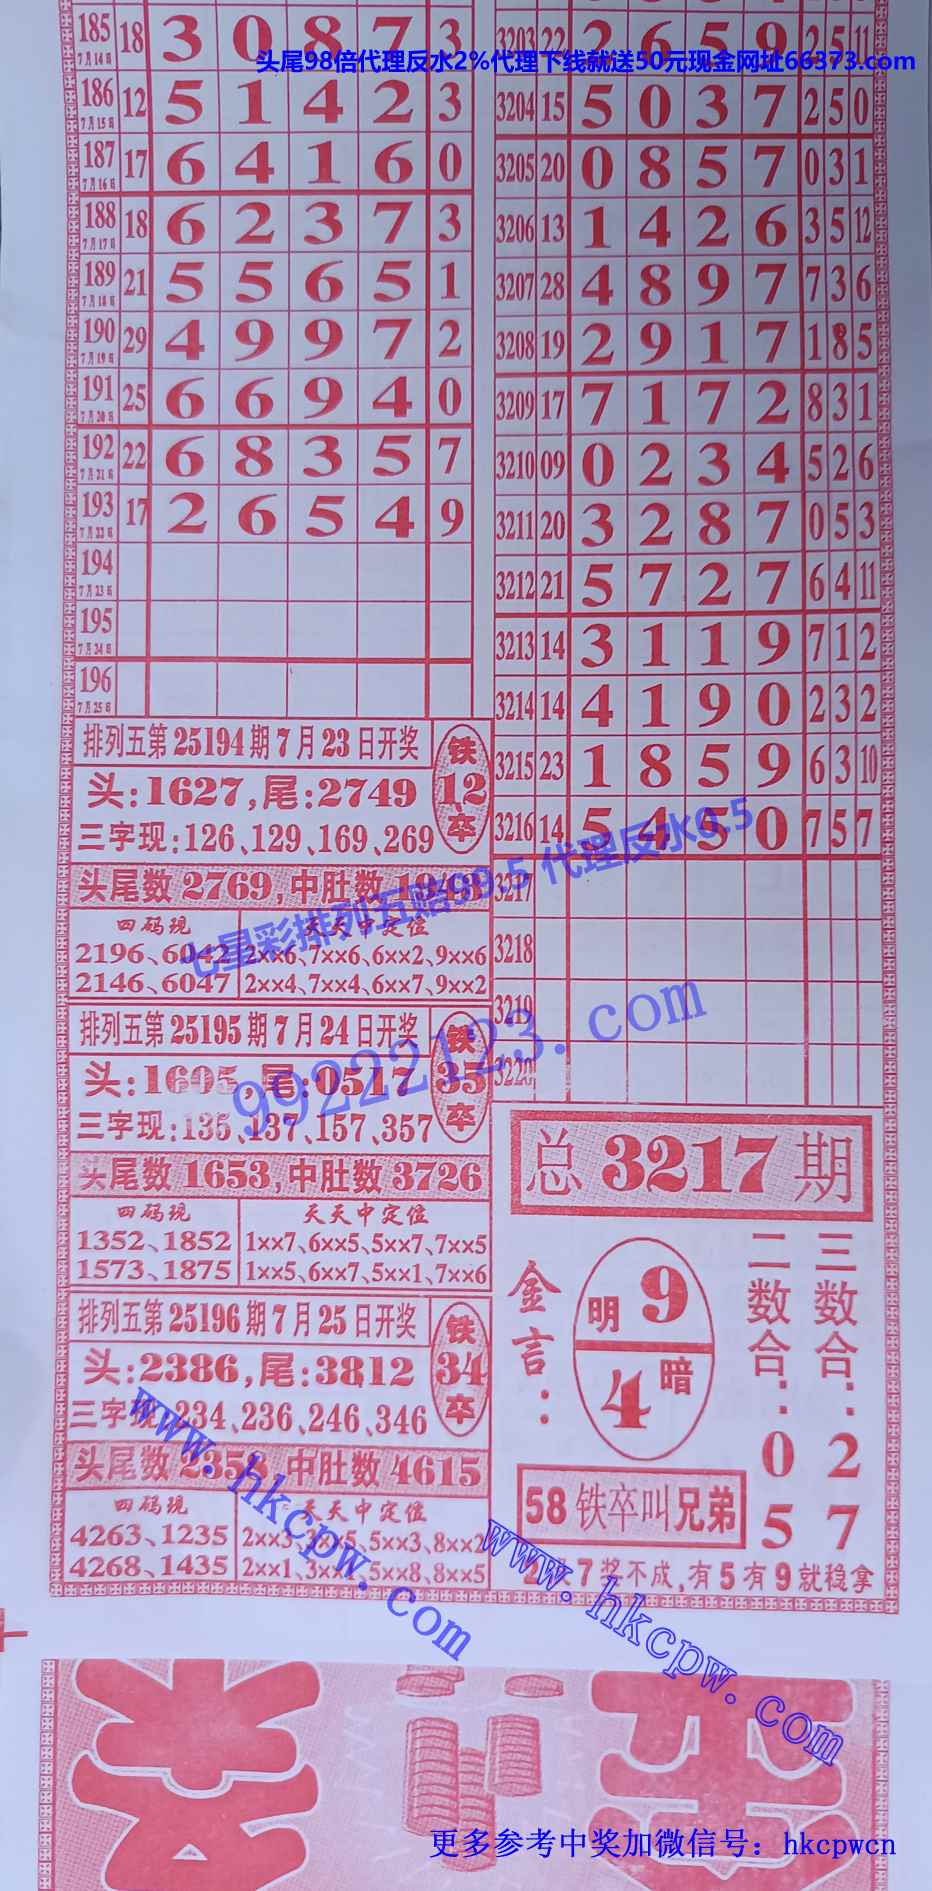 头尾98倍代理反水2%代理下线就送50元现金网址66373.com
185 7月14日 18 3 0 8 7 3
186 7月15日 12 5 1 4 2 3
187 7月16日 17 6 4 1 6 0
188 7月17日 18 6 2 3 7 3
189 7月18日 21 5 5 6 5 1
190 7月19日 29 4 9 9 7 2
191 7月20日 25 6 6 9 4 0
192 7月21日 22 6 8 3 5 7
193 7月22日 17 2 6 5 4 9
194 7月23日
195 7月24日
196 7月25日
排列五第25194期7月23日开奖
铁12卒
头:1627,尾:2749
三字现:126、129、169、269
头尾数2769,中肚数1943
四码现 天天中定位
2196、6042 2××6、7××6、6××2、9××6
2146、6047 2××4、7××4、6××7、9××2
排列五第25195期7月24日开奖
铁35卒
头:1605,尾:0517
三字现:135、137、157、357
头尾数1653,中肚数3726
四码现 天天中定位
1352、1852 1××7、6××5、5××7、7××5
1573、1875 1××5、6××7、5××1、7××6
排列五第25196期7月25日开奖
铁34卒
头:2386,尾:3812
三字现:234、236、246、346
头尾数235,中肚数4615
四码现 天天中定位
4263、1235 2××3、3××5、5××3、8××2
4268、1435 2××1、3××、5××8、8××5
3203 22 2 6 5 9 2 5 11
3204 15 5 0 3 7 2 5 0
3205 20 0 8 5 7 0 3 1
3206 13 1 4 2 6 3 5 12
3207 28 4 8 9 7 7 3 6
3208 19 2 9 1 7 1 8 5
3209 17 7 1 7 2 8 3 1
3210 09 0 2 3 4 5 2 6
3211 20 3 2 8 7 0 5 3
3212 21 5 7 2 7 6 4 11
3213 14 3 1 1 9 7 1 2
3214 14 4 1 9 0 2 3 2
3215 23 1 8 5 9 6 3 10
3216 14 5 4 5 0 7 5 7
3217
3218
3219
3220
总3217期
金言:
明9
4暗
二数合:05
三数合:27
58铁卒叫兄弟
7奖不成,有5有9就稳拿
七星彩排列五赔99.5 代理反水0.5
99222123.com
www.hkcpw.com
www.hkcpw.com
更多参考中奖加微信号：hkcpwcn